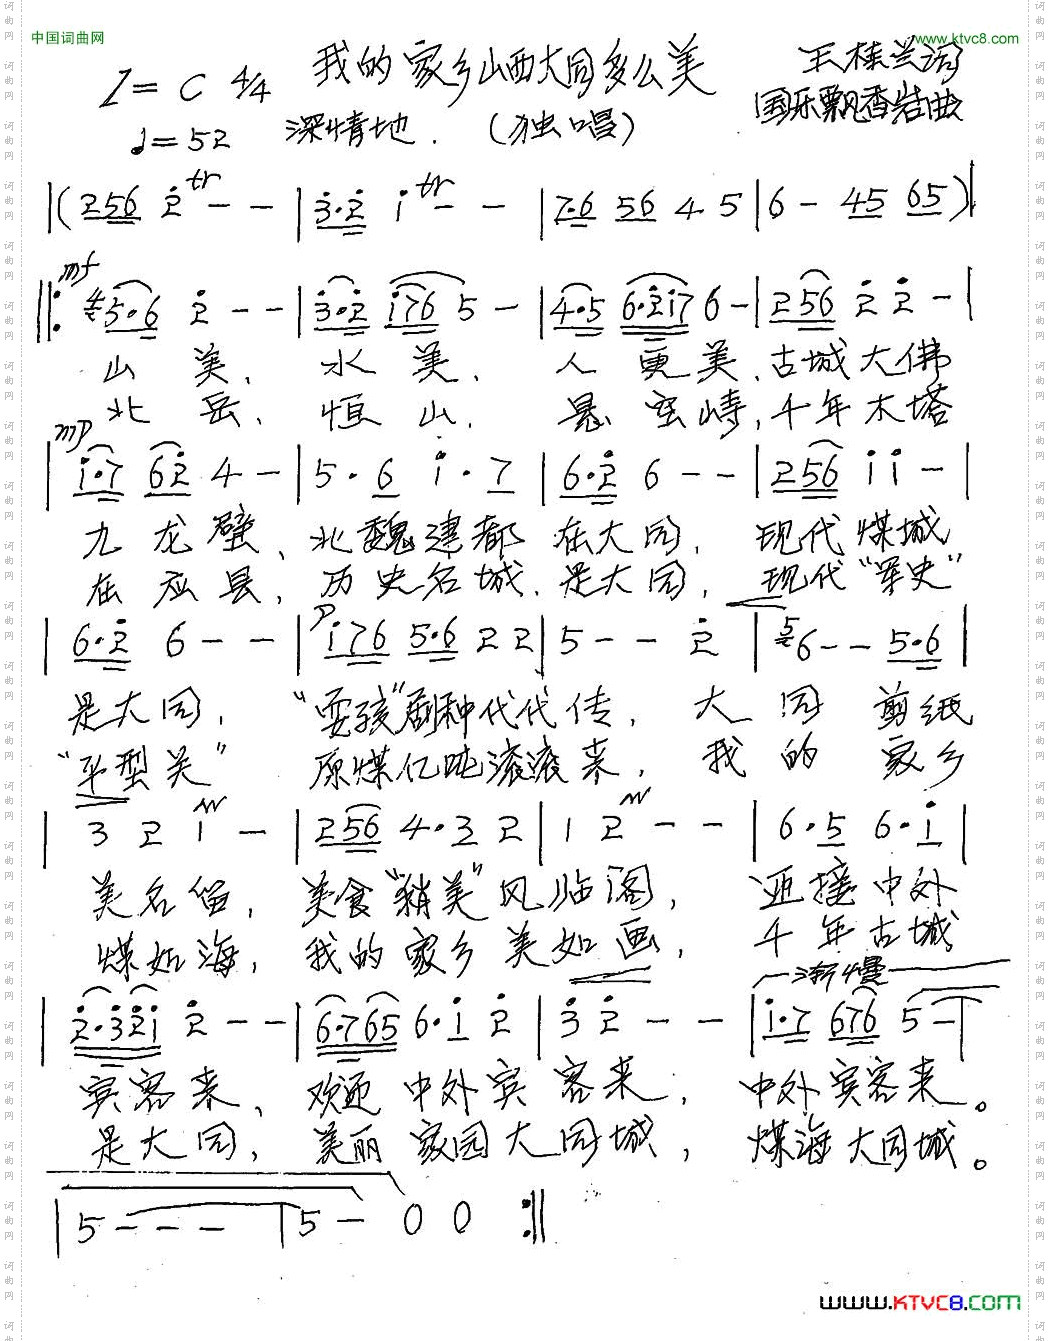 中国词曲网
www.ktvc8.com
我的家乡山西大同多么美
王桂兰词
1= C 4/4
国乐飘香岩曲
♩=52
深情地.
(独唱)
|(256 2 tr - - | 3·2 1 tr - - | 7·6 56 4 5 | 6 - 45 65 )|
mf
‖: 4 5·6 2 - - | 3·2 176 5 - | 4·5 6·217 6 - | 256 2 2 - |
山 美, 水 美, 人 更美,古城大佛
北 岳, 恒 山, 悬 空寺,千年木塔
mp
| 1·7 62 4 - | 5·6 1·7 | 6·2 6 - - | 256 1 1 - |
九 龙 壁, 北魏建都 在大同, 现代煤城
在 应 县, 历史名城, 是大同, 现代“军史”
| 6·2 6 - - | p 176 5·6 2 2 | 5 - - 2 | 5 6 - - 5·6 |
是大同, “耍孩”剧种代代传, 大 同 剪纸
“平型关” 原煤亿吨滚滚来, 我 的 家乡
| 3 2 1 - | 256 4·3 2 | 1 2 - - | 6·5 6·1 |
美名留, 美食“稍美”风临阁, 迎接中外
煤如海, 我的家乡美如画, 千年古城
渐慢
| 2·321 2 - - | 6·765 6·1 2 | 3 2 - - | 1·7 676 5 - |
宾客来, 欢迎 中外宾 客来, 中外宾客来。
是大同, 美丽 家园大同城, 煤海大同城。
| 5 - - - | 5 - 0 0 :‖
www.KTVC8.COM